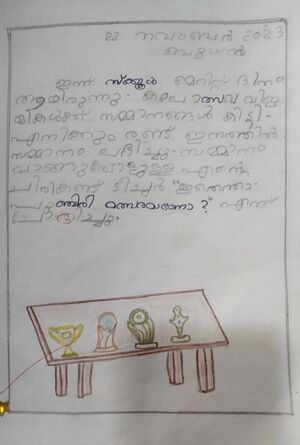 22 നവംബർ 2023
ബുധൻ
ഇന്ന് സ്കൂൾ മെറിറ്റ് ദിനം
ആയിരുന്നു. കലോത്സവ വിജ
യികൾക്ക് സമ്മാനങ്ങൾ കിട്ടി.
എനിക്കും രണ്ട് ഇനത്തിൽ
സമ്മാനം ലഭിച്ചു. സമ്മാനം
വാങ്ങുമ്പോളുള്ള എന്റെ
ചിരികണ്ട് ടീച്ചർ "ഇതെന്താ
പുഞ്ചിരി മത്സരമാണോ?" എന്ന്
ചോദിച്ചു.